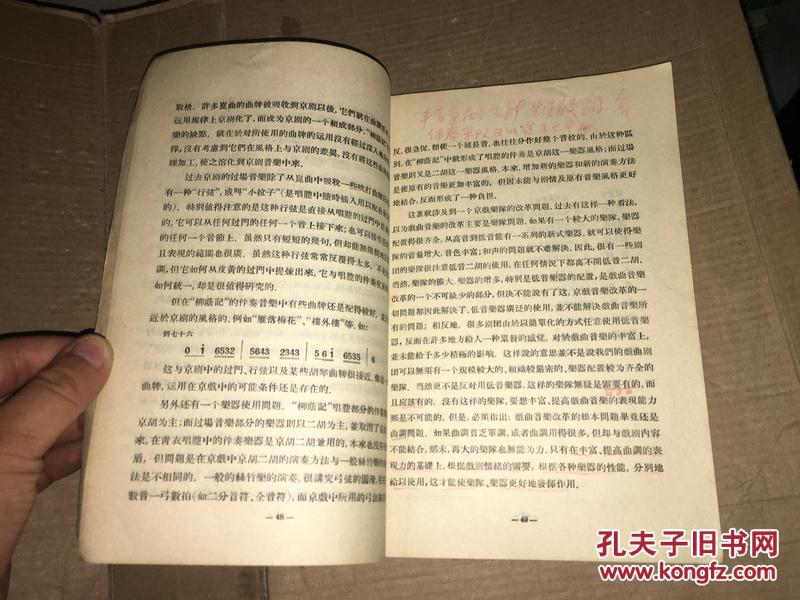 取捨．許多崑曲的曲牌被吸收到京剧以後，它們就在曲調
运用規律上京剧化了，而成为京剧的一个組成部分．“柳蔭記”
樂的缺點，就在於对所使用的曲牌的运用沒有經过深入
沒有考慮到它們在風格上与京剧的差異，沒有將这些曲
理加工，使之溶化到京剧音樂中來．
过去京剧的过場音樂除了从崑曲中吸收一些吹打曲牌以
有一种“行弦”，或叫“小拉子”（是唱腔中隨時插入用以配合
的）．特別值得注意的是这种行弦是直接从唱腔的过門中
它，它可以从任何过門的任何一个音上挽下來；也可以接在任
的任何一个音節上．虽然只有短短的幾句，但却能無限
且表現的範圍也很廣．虽然这种行弦常常反覆得太多，不
調，但它如何从皮黃的过門中提煉出來，它与唱腔的伴奏在
如何統一，却是很值得研究的．
但在“柳蔭記”的伴奏音樂中有些曲牌还是配得較好，
近於京剧的風格的．例如“雁落梅花”、“樓外樓”等．如：
到七十六
0 i 6532 | 5643 2343 | 5 6 i 6535 | 6
这与京剧中的过門、行弦以及某些胡琴曲牌很接近，像这
曲牌，运用在京戲中的可能条件还是存在的．
另外还有一个樂器使用問題．“柳蔭記”唱腔部分的伴奏
京胡为主；而过場音樂部分的樂器則以二胡为主，並取消了京
來，在青衣唱腔中的伴奏樂器是京胡二胡兼用的，本來也沒有
盾，但問題是在京戲中京胡二胡的演奏方法与一般絲竹樂的
法是不相同的．一般的絲竹樂的演奏，很講究弓弦的圓滑，
數音一弓數拍（如二分音符、全音符），而京戲中所用的弓法
— 48 —
反，很急促，即使一个延長音，也往往分作好幾个音拉的．由於这种區
別，在“柳蔭記”中就形成了唱腔的伴奏是京胡这一樂器風格；而过場
音樂則又是二胡这一樂器風格．本來，增加新的樂器和新的演奏方法
是使原有的音樂更加丰富的，但因未能与剧情及原有音樂風格更好
地結合，反而形成了一种負担．
这裏就涉及到一个京戲樂隊的改革問題．过去有这样一种看法，
以为戲曲音樂的改革主要是樂隊問題．如果有一个較大的樂隊，樂器
配置得很齐全，从高音到低音能有一系列的新式樂器，就可以使得樂
隊的音量增大、音色丰富；和声的問題就不难解决．因此，很有一些剧
团的樂隊很注意低音二胡的使用，在任何情况下都离不開低音二胡．
当然，樂隊的擴大、樂器的增多，特別是低音樂器的配置，是戲曲音樂
改革的一个不可缺少的部分，但决不能說有了这，京戲音樂改革的一
切問題都因此解决了．低音樂器廣泛的使用，並不能解决戲曲音樂所
有的問題；相反地，很多剧团由於以簡單化的方式任意使用低音樂
器，反而在許多地方給人一种累贅的感覚．对於戲曲音樂的丰富上，
並未能給予多少積極的影响．这样說的意思並不是說我們的戲曲剧
团可以無須有一个規模較大的、組織較嚴密的、樂器配置較为齐全的
樂隊．当然更不是反对用低音樂器．这样的樂隊無疑是需要有的，而
且应該有的．沒有这样的樂隊，要想丰富、提高戲曲音樂的表現能力
那是不可能的．但是，必須指出：戲曲音樂改革的根本問題畢竟还是
曲調問題．如果曲調貧乏單調，或者曲調用得很多，但却与戲剧內容
不能結合，那末，再大的樂隊也無能为力．只有在丰富、提高曲調的表
現力的基礎上，根据戲剧情緒的需要，根据各种樂器的性能，分別地
給以使用，这才能使樂隊、樂器更好地發揮作用．
— 49 —
孔夫子旧书网
www.kongfz.com